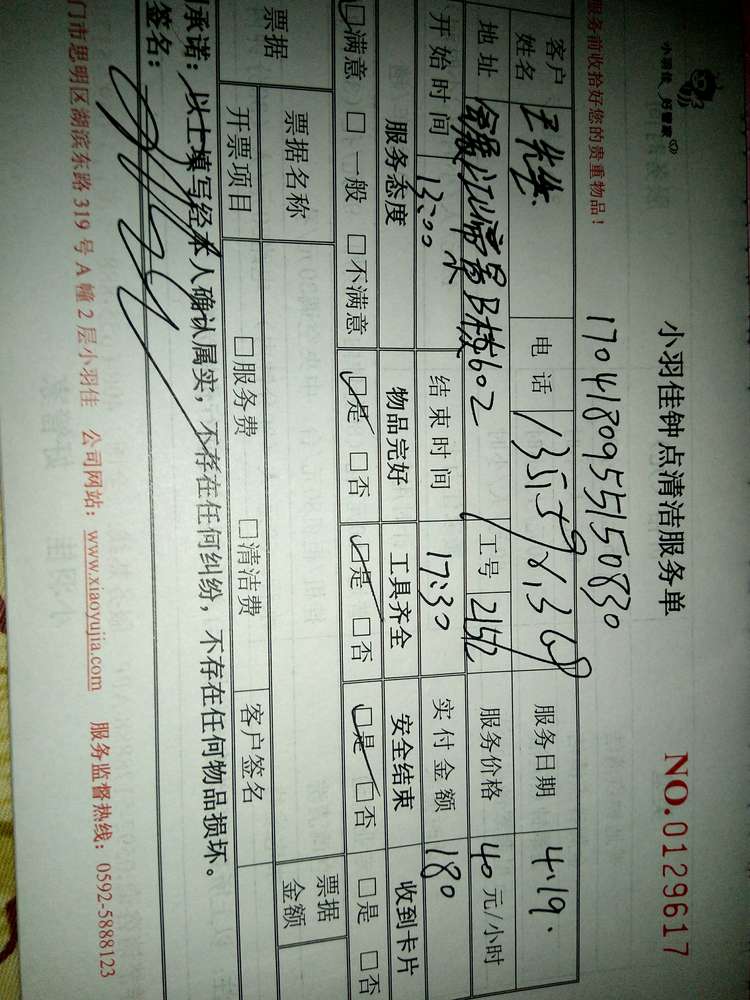 小羽佳 好管家
小羽佳钟点清洁服务单
NO.0129617
服务前收拾好您的贵重物品!
17041809551 50830
客户姓名 王先生 电话 服务日期 4.19.
地址 B栋602 工号 2152 服务价格 40元/小时
开始时间 13:00 结束时间 17:30 实付金额 180
服务态度 物品完好 工具齐全 安全结束 收到卡片
□满意 □一般 □不满意 □是 □否 □是 □否 □是 □否 □是 □否
票据 票据名称 票据金额
开票项目 □服务费 □清洁费 客户签名
承诺:以上填写经本人确认属实,不存在任何纠纷,不存在任何物品损坏。
签名:
门市思明区湖滨东路319号A幢2层小羽佳 公司网站:www.xiaoyujia.com 服务监督热线:0592-5888123